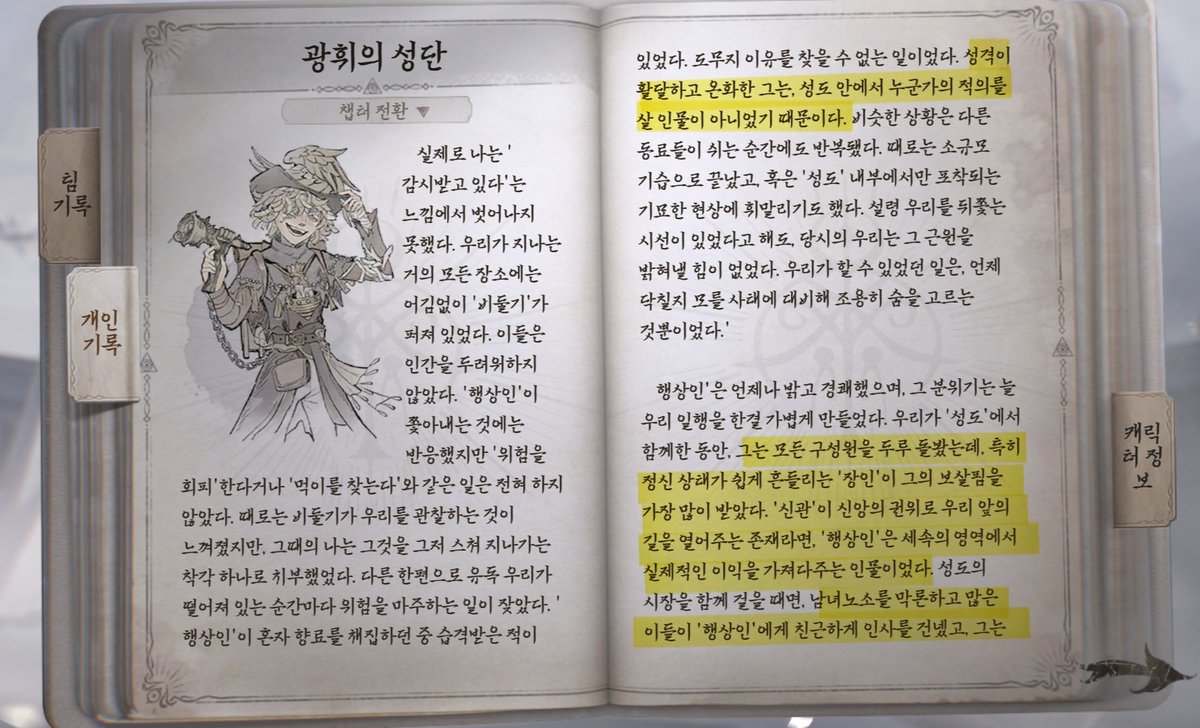 광휘의 성단
챕터 전환
팀
기록
개인
기록
실제로 나는 '
감시받고 있다'는
느낌에서 벗어나지
못했다. 우리가 지나는
거의 모든 장소에는
어김없이 '비둘기'가
퍼져 있었다. 이들은
인간을 두려워하지
않았다. '행상인'이
쫓아내는 것에는
반응했지만 '위험을
회피'한다거나 '먹이를 찾는다'와 같은 일은 전혀 하지
않았다. 때로는 비둘기가 우리를 관찰하는 것이
느껴졌지만, 그때의 나는 그것을 그저 스쳐 지나가는
착각 하나로 치부했었다. 다른 한편으로 유독 우리가
떨어져 있는 순간마다 위험을 마주하는 일이 잦았다. '
행상인'이 혼자 향료를 채집하던 중 습격받은 적이
있었다. 도무지 이유를 찾을 수 없는 일이었다. 성격이
활달하고 온화한 그는, 성도 안에서 누군가의 적의를
살 인물이 아니었기 때문이다. 비슷한 상황은 다른
동료들이 쉬는 순간에도 반복됐다. 때로는 소규모
기습으로 끝났고, 혹은 '성도' 내부에서만 포착되는
기묘한 현상에 휘말리기도 했다. 설령 우리를 뒤쫓는
시선이 있었다고 해도, 당시의 우리는 그 근원을
밝혀낼 힘이 없었다. 우리가 할 수 있었던 일은, 언제
닥칠지 모를 사태에 대비해 조용히 숨을 고르는
것뿐이었다.'
행상인'은 언제나 밝고 경쾌했으며, 그 분위기는 늘
우리 일행을 한결 가볍게 만들었다. 우리가 '성도'에서
함께한 동안, 그는 모든 구성원을 두루 돌봤는데, 특히
정신 상태가 쉽게 흔들리는 '장인'이 그의 보살핌을
가장 많이 받았다. '신관'이 신앙의 권위로 우리 앞의
길을 열어주는 존재라면, '행상인'은 세속의 영역에서
실제적인 이익을 가져다주는 인물이었다. 성도의
시장을 함께 걸을 때면, 남녀노소를 막론하고 많은
이들이 '행상인'에게 친근하게 인사를 건넸고, 그는
캐릭
터 정
보